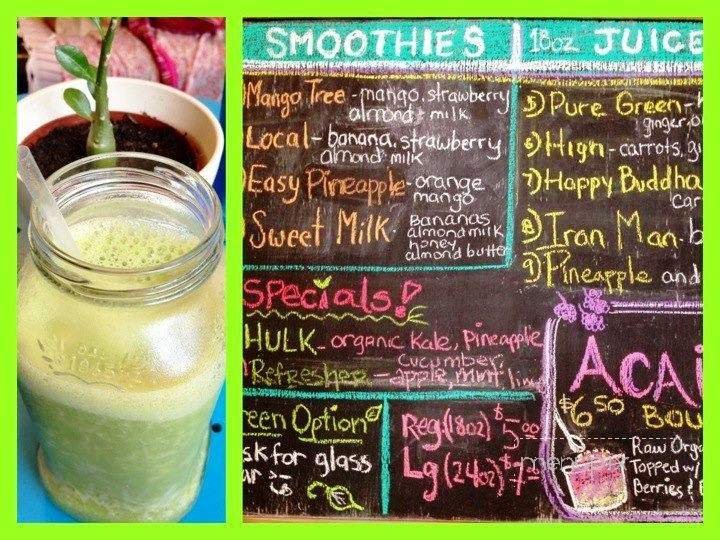 SMOOTHIES
Mango Tree - mango, strawberry
almond milk
Local - banana, strawberry
almond milk
Easy Pineapple - orange
mango
Sweet Milk - Bananas
almond milk
honey
almond butter
18oz JUICE
5) Pure Green -
ginger,
6) High - carrots, gi
7) Happy Buddha
car
8) Iron Man - b
9) Pineapple and
Specials!
HULK - organic Kale, Pineapple
cucumber,
Refresher - apple, mint, lime
een Option
sk for glass
ar :)
Reg (18oz) $5.00
Lg (24oz) $7
ACAI
$6.50 BOW
Raw Orga
Topped w/
Berries &